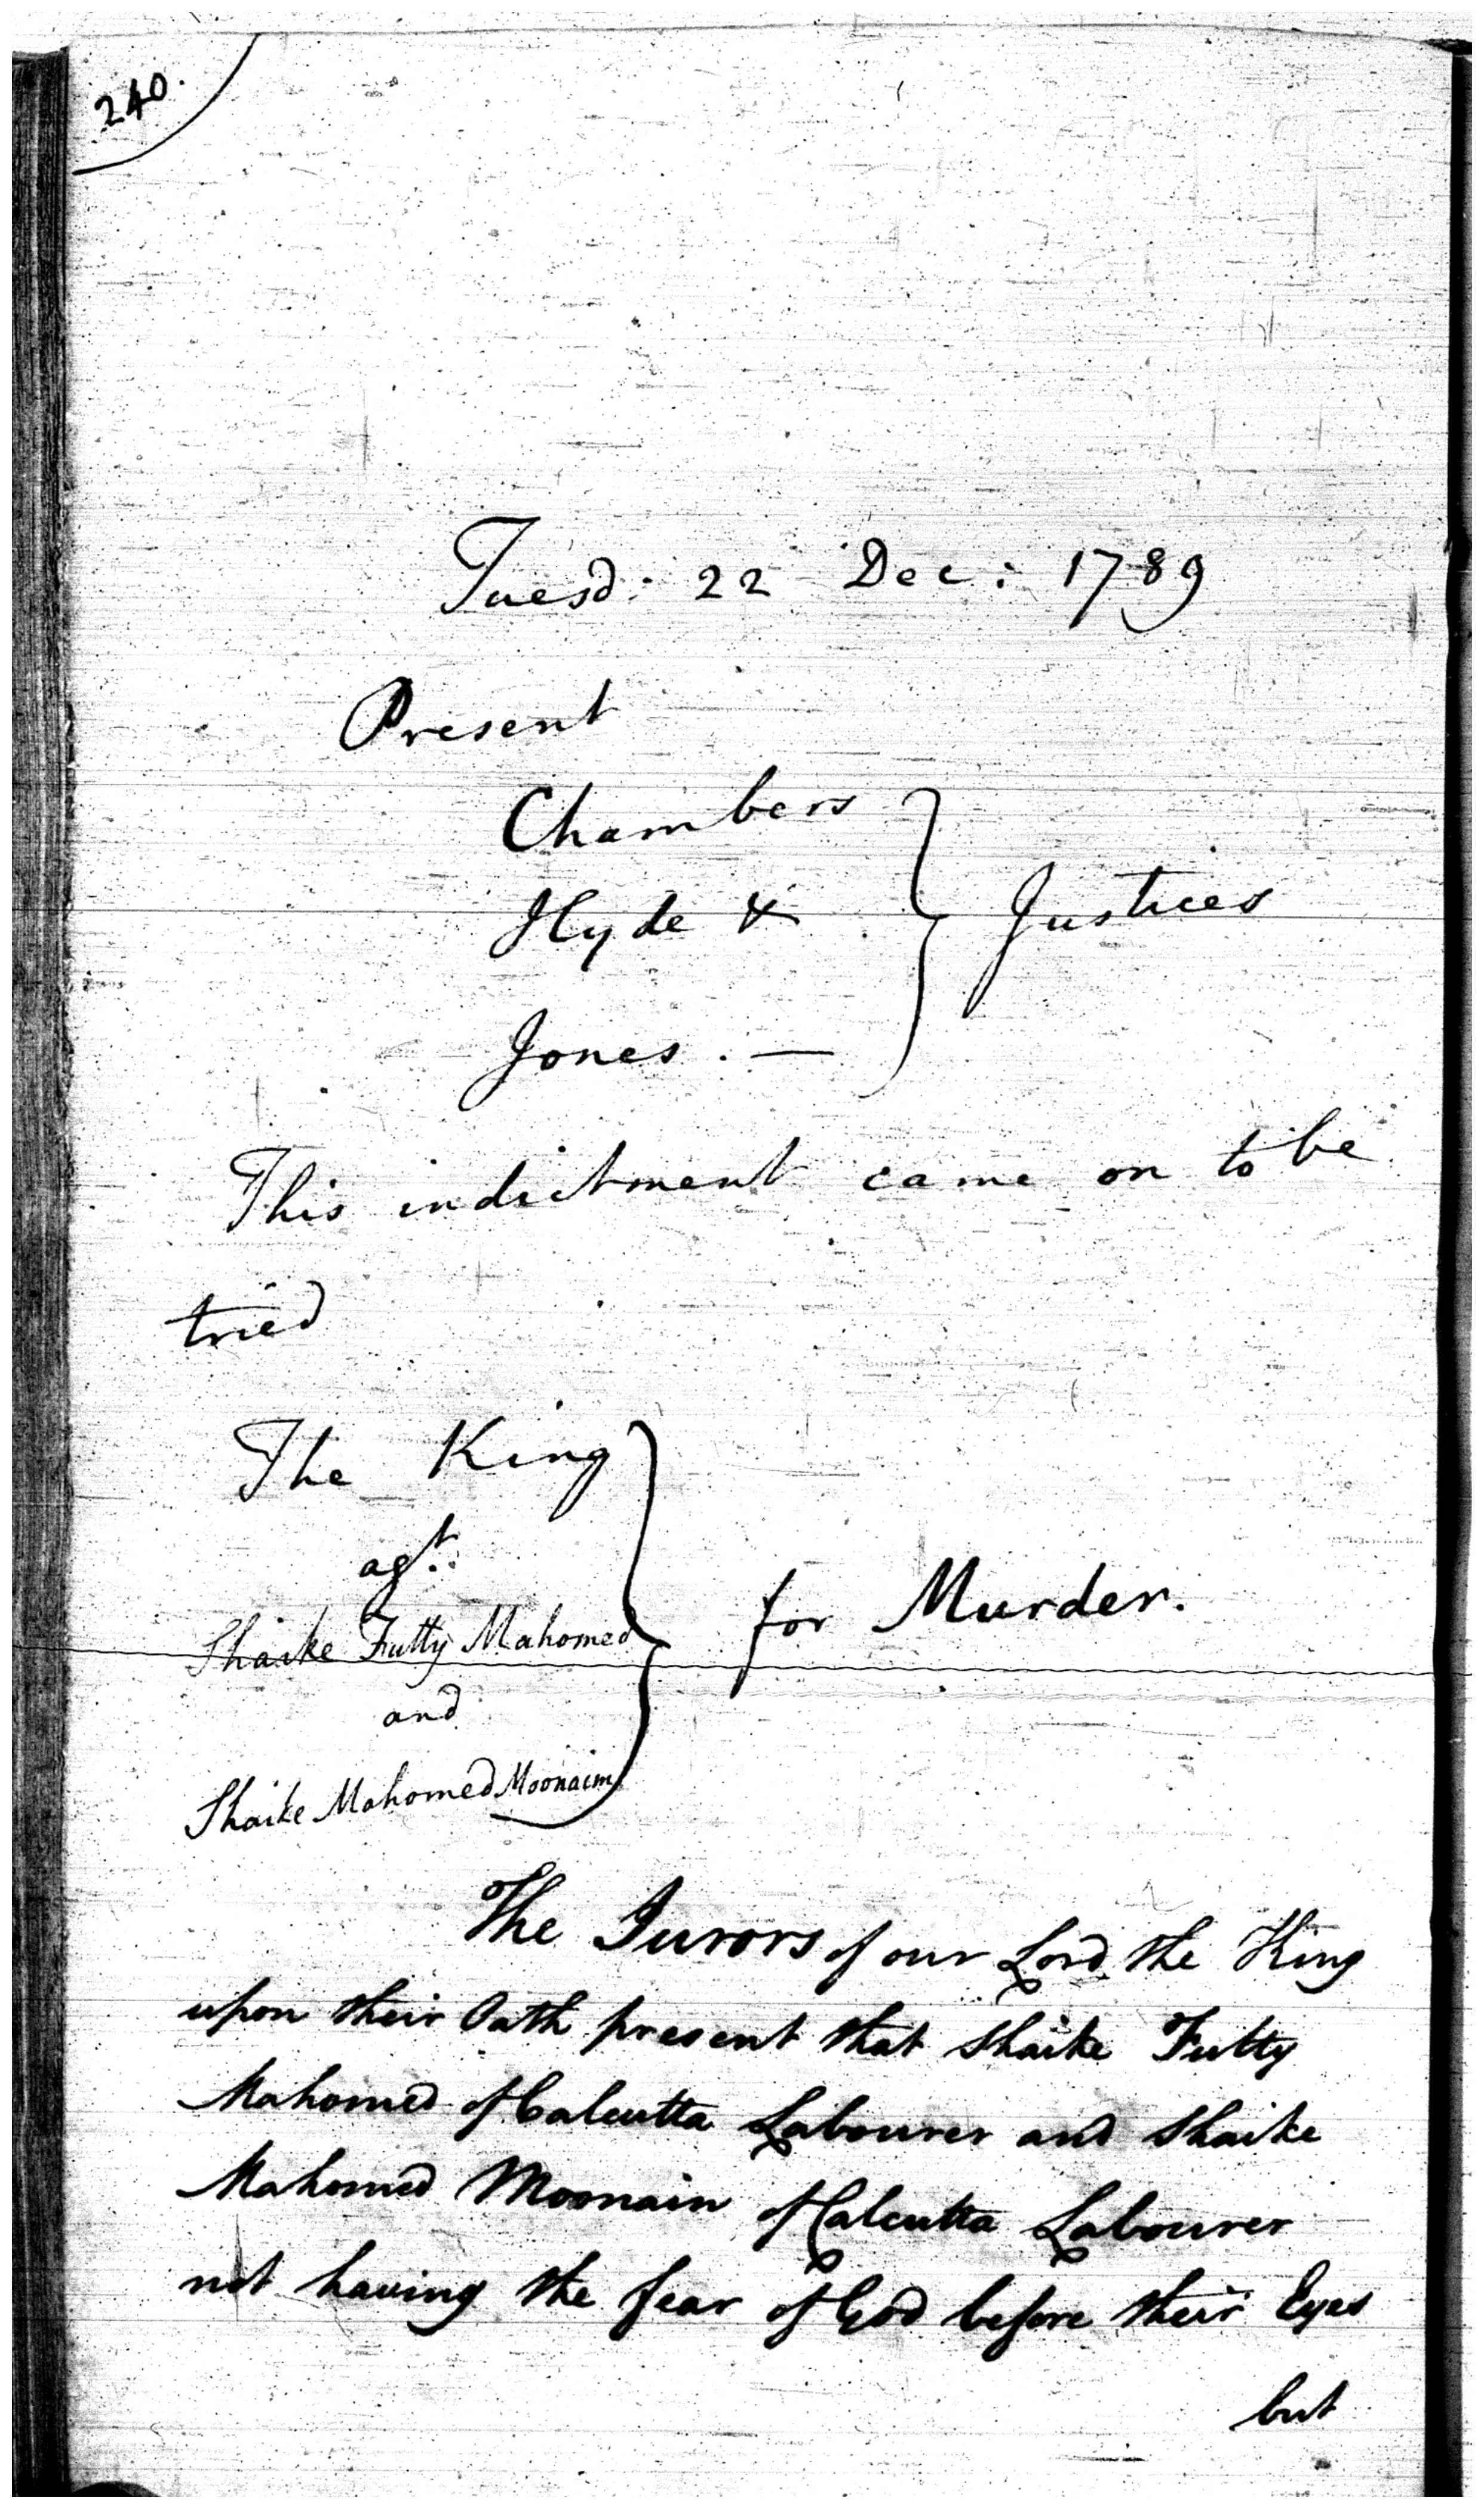 240.
Tuesd: 22 Dec: 1789
Present
Chambers
Hyde & } Justices
Jones. —
This indictment came on to be
tried
The King
agt.
Shaike Futty Mahomed } for Murder.
and
Shaike Mahomed Moonaim
The Jurors of our Lord the King
upon their Oath present that Shaike Futty
Mahomed of Calcutta Labourer and Shaike
Mahomed Moonain of Calcutta Labourer
not having the fear of God before their Eyes
but